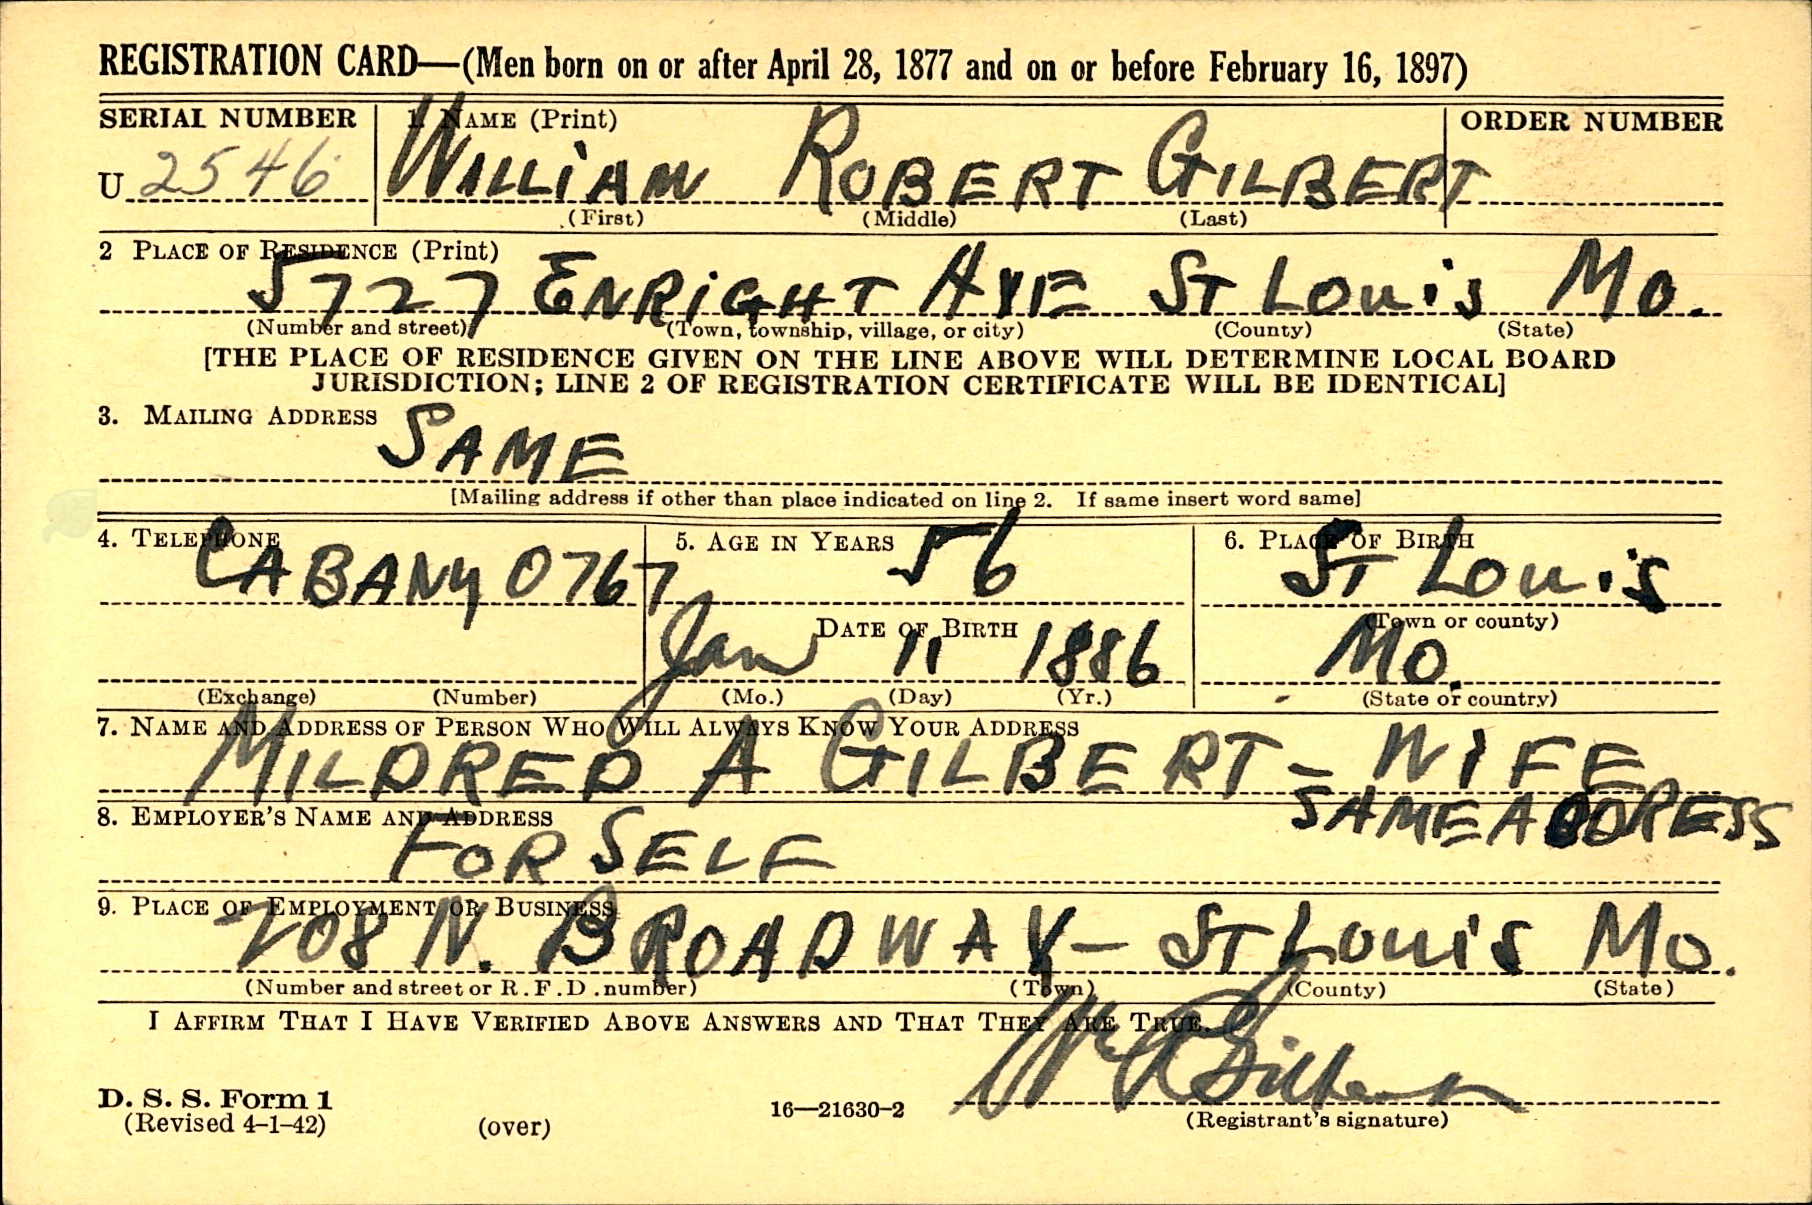 REGISTRATION CARD—(Men born on or after April 28, 1877 and on or before February 16, 1897)
SERIAL NUMBER 1. NAME (Print) ORDER NUMBER
U 2546 WILLIAM ROBERT GILBERT
(First) (Middle) (Last)
2 PLACE OF RESIDENCE (Print)
5727 ENRIGHT AVE ST LOUIS MO.
(Number and street) (Town, township, village, or city) (County) (State)
[THE PLACE OF RESIDENCE GIVEN ON THE LINE ABOVE WILL DETERMINE LOCAL BOARD
JURISDICTION; LINE 2 OF REGISTRATION CERTIFICATE WILL BE IDENTICAL]
3. MAILING ADDRESS
SAME
[Mailing address if other than place indicated on line 2. If same insert word same]
4. TELEPHONE 5. AGE IN YEARS 6. PLACE OF BIRTH
CABANY 0767 56 ST LOUIS
DATE OF BIRTH (Town or county)
Jan 11 1886 MO.
(Exchange) (Number) (Mo.) (Day) (Yr.) (State or country)
7. NAME AND ADDRESS OF PERSON WHO WILL ALWAYS KNOW YOUR ADDRESS
MILDRED A GILBERT - WIFE
SAME ADDRESS
8. EMPLOYER'S NAME AND ADDRESS
FOR SELF
9. PLACE OF EMPLOYMENT OR BUSINESS
208 N. BROADWAY - ST LOUIS MO.
(Number and street or R.F.D. number) (Town) (County) (State)
I AFFIRM THAT I HAVE VERIFIED ABOVE ANSWERS AND THAT THEY ARE TRUE.
Wm R Gilbert
D. S. S. Form 1
(Revised 4-1-42) (over) 16—21630-2 (Registrant's signature)